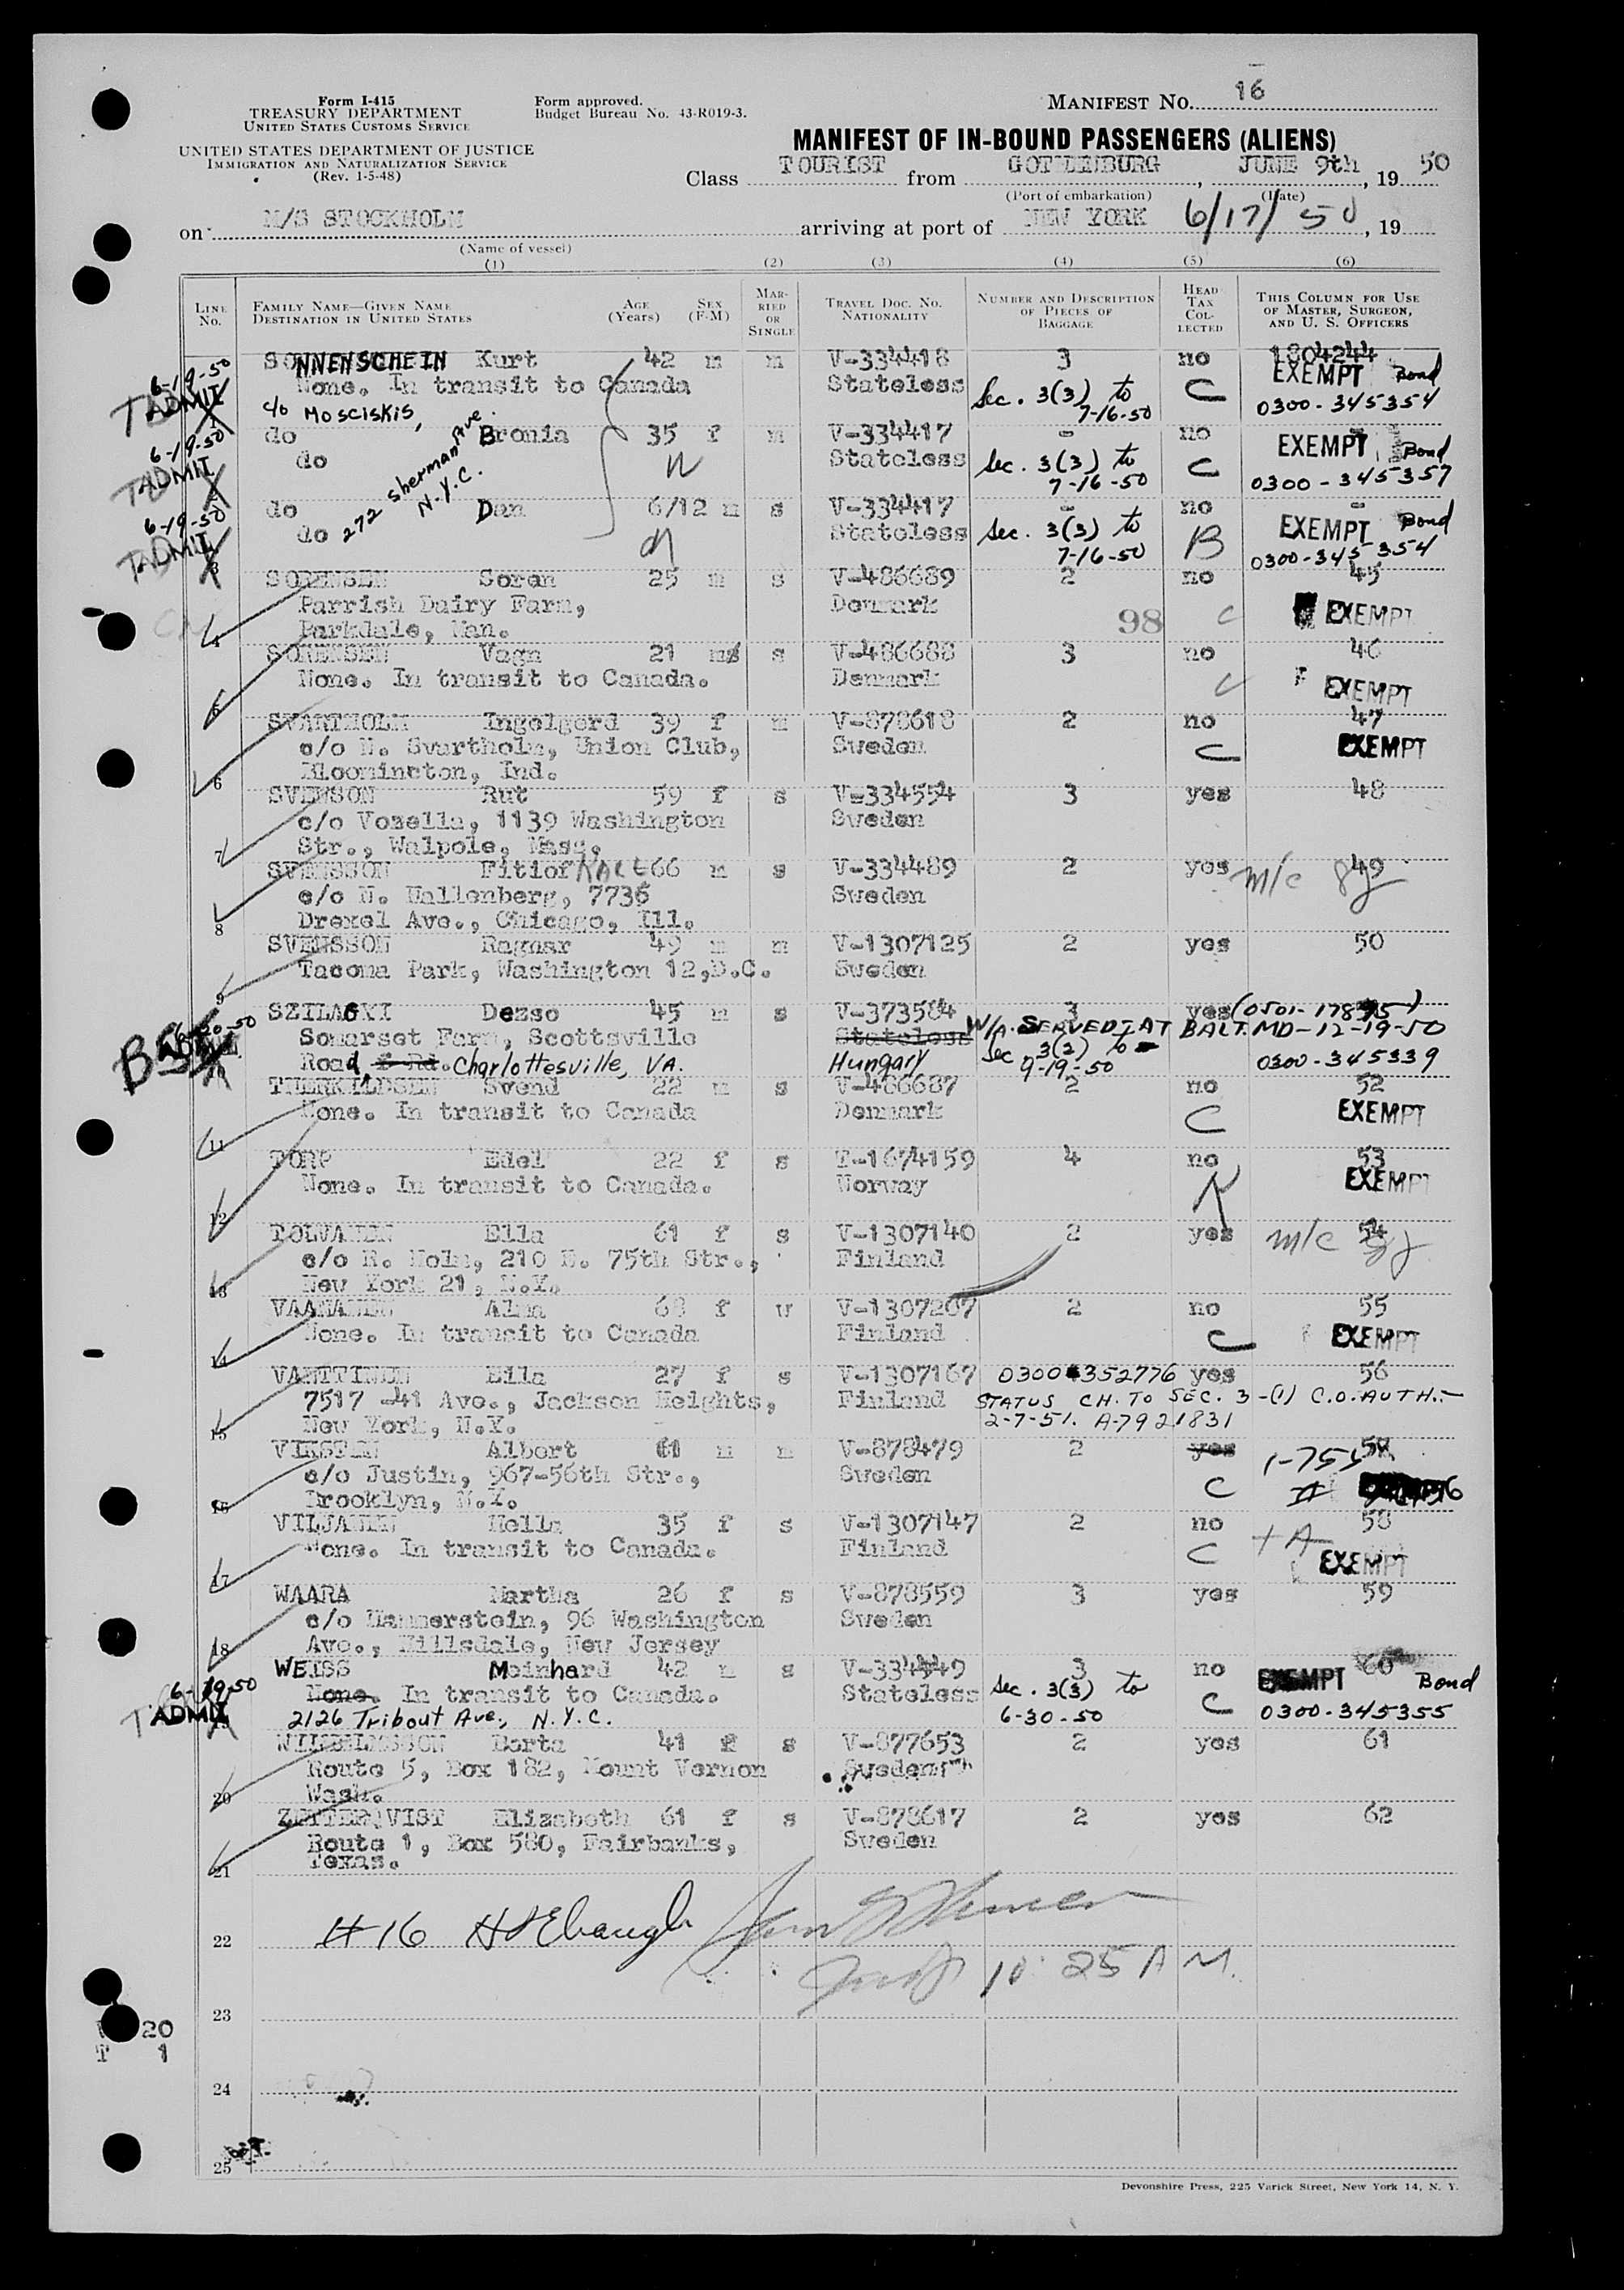 Form I-415
TREASURY DEPARTMENT
UNITED STATES CUSTOMS SERVICE
UNITED STATES DEPARTMENT OF JUSTICE
IMMIGRATION AND NATURALIZATION SERVICE
(Rev. 1-5-48)
Form approved.
Budget Bureau No. 43-R019-3.
MANIFEST NO. 16
MANIFEST OF IN-BOUND PASSENGERS (ALIENS)
Class TOURIST from GOTHENBURG, JUNE 9th, 19 50
(Port of embarkation) (Date)
on M/S STOCKHOLM arriving at port of NEW YORK 6/17/50, 19
(Name of vessel)
(1) (2) (3) (4) (5) (6)
LINE NO. FAMILY NAME—GIVEN NAME DESTINATION IN UNITED STATES AGE (Years) SEX (F-M) MARRIED OR SINGLE TRAVEL DOC. NO. NATIONALITY NUMBER AND DESCRIPTION OF PIECES OF BAGGAGE HEAD TAX COLLECTED THIS COLUMN FOR USE OF MASTER, SURGEON, AND U. S. OFFICERS
6-19-50 SONNENSCHEIN Kurt 42 m m V-334418 3 no 1804244
ADMIT None. In transit to Canada Stateless Sec. 3(3) to 7-16-50 C EXEMPT Bond
1 c/o Mosciskis, 0300-345354
6-19-50 do Bronia 35 f m V-334417 - no -
ADMIT do Stateless Sec. 3(3) to C EXEMPT Bond
2 272 Sherman Ave. N.Y.C. 7-16-50 0300-345357
6-19-50 do Dan 6/12 m s V-334417 - no -
ADMIT do Stateless Sec. 3(3) to B EXEMPT Bond
3 7-16-50 0300-345354
SORENSEN Soren 25 m s V-486689 2 no 45
Parrish Dairy Farm, Denmark 98 C EXEMPT
4 Parkdale, Man.
SORENSEN Vagn 21 m s V-486688 3 no 46
None. In transit to Canada. Denmark EXEMPT
5
SVARTHOLM Ingelgerd 39 f m V-878618 2 no 47
c/o N. Svartholm, Union Club, Sweden C EXEMPT
6 Bloomington, Ind.
SVENSON Rut 59 f s V-334554 3 yes 48
c/o Vozella, 1139 Washington Sweden
7 Str., Walpole, Mass.
SVENSSON Fitiof KARL 66 m s V-334489 2 yes m/c 49
c/o N. Wallenberg, 7736 Sweden
8 Drexel Ave., Chicago, Ill.
SVENSSON Ragnar 49 m m V-1307125 2 yes 50
Tacoma Park, Washington 12, D.C. Sweden
9
SZILAGYI Dezso 45 m s V-373584 3 yes
Somerset Farm, Scottsville Stateless W/A. SERVED AT BALT. MD-12-19-50
Road, Charlottesville, VA. Hungary Sec. 3(2) to 9-19-50 0300-345339
THERKILDSEN Svend 22 m s V-486687 2 no 52
None. In transit to Canada Denmark C EXEMPT
11
TORP Edel 22 f s T-1674159 4 no 53
None. In transit to Canada. Norway EXEMPT
12
TOLVANEN Ella 61 f s V-1307140 2 yes m/c 54
c/o R. Holm, 210 E. 75th Str., Finland
13 New York 21, N.Y.
VAANANEN Alma 68 f w V-1307207 2 no 55
None. In transit to Canada Finland C EXEMPT
14
VANTTINEN Eila 27 f s V-1307167 0300-352776 yes 56
7517 -41 Ave., Jackson Heights, Finland STATUS CH. TO SEC. 3-(1) C.O. AUTH.-
15 New York, N.Y. 2-7-51. A-7921831
Albert 61 m m V-878479 2 yes
c/o Justin, 967-56th Str., Sweden C
16 Brooklyn, N.Y.
VILJANEN Hella 35 f s V-1307147 2 no 58
None. In transit to Canada. Finland C EXEMPT
17
WAARA Martha 26 f s V-878559 3 yes 59
c/o Hammerstein, 96 Washington Sweden
18 Ave., Hillsdale, New Jersey
WEISS Meinhard 42 m s V-334449 3 no 60
6-19-50 None. In transit to Canada. Stateless Sec. 3(3) to EXEMPT Bond
ADMIT 2126 Tribout Ave., N.Y.C. 6-30-50 C 0300-345355
WILHELMSSON Berta 41 f s V-877653 2 yes 61
Route 5, Box 182, Mount Vernon Sweden
20 Wash.
ZETTERQVIST Elizabeth 61 f s V-878617 2 yes 62
Route 1, Box 580, Fairbanks, Sweden
21 Texas.
22 #16 H S Ebaugh
10:25 AM.
23
20
T 1
24
25
Devonshire Press, 225 Varick Street, New York 14, N. Y.